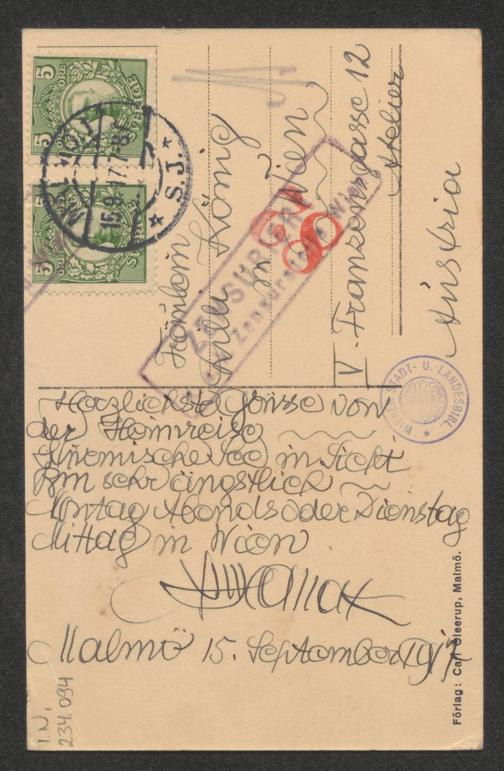 5 ÖRE 5
SVERIGE
5 ÖRE 5
SVERIGE
MALMÖ 1
15.9.17.7-8
* S.J. *
Fräulein
Willi König
in Wien
V. Franzensgasse 12
Atelier
Austria
ZENSURIERT
Zensurstelle Wien
68
WIENER STADT- U. LANDESBIBL.
Herzlichste Grüsse von
der Heimreise
Stürmische See in Sicht
Bin sehr ängstlich
Montag Abends oder Dienstag
Mittag in Wien
Malmö 15. September 1917
Förlag: Carl Cleerup, Malmö.
I.N.
234.094